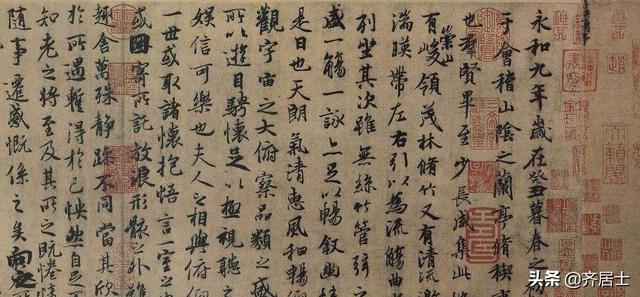 永和九年歲在癸丑暮春之
于會稽山陰之蘭亭脩稧
也群賢畢至少長咸集此
崇山
有峻領茂林脩竹又有清流激
湍暎帶左右引以為流觴曲
列坐其次雖無絲竹管弦之
盛一觴一詠亦足以暢敘幽情
是日也天朗氣清惠風和暢仰
觀宇宙之大俯察品類之盛
所以遊目騁懷足以極視聽之
娛信可樂也夫人之相與俯仰
一世或取諸懷抱悟言一室之內
或因寄所託放浪形骸之外雖
趣舍萬殊靜躁不同當其欣
於所遇蹔得於己怏然自足
知老之將至及其所之既惓情
隨事遷感慨係之矣向之
头条 @齐居士